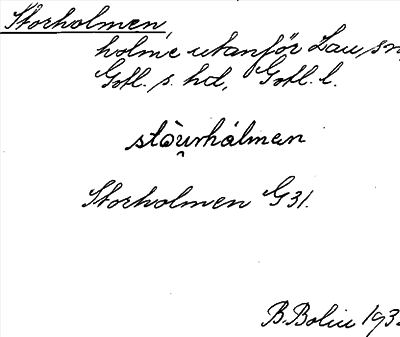 Storholmen,
holme utanför Lau, sn,
Gotl. s. hd, Gotl. l.
stòu̯rhálmen
Storholmen G31.
B. Bolin 193